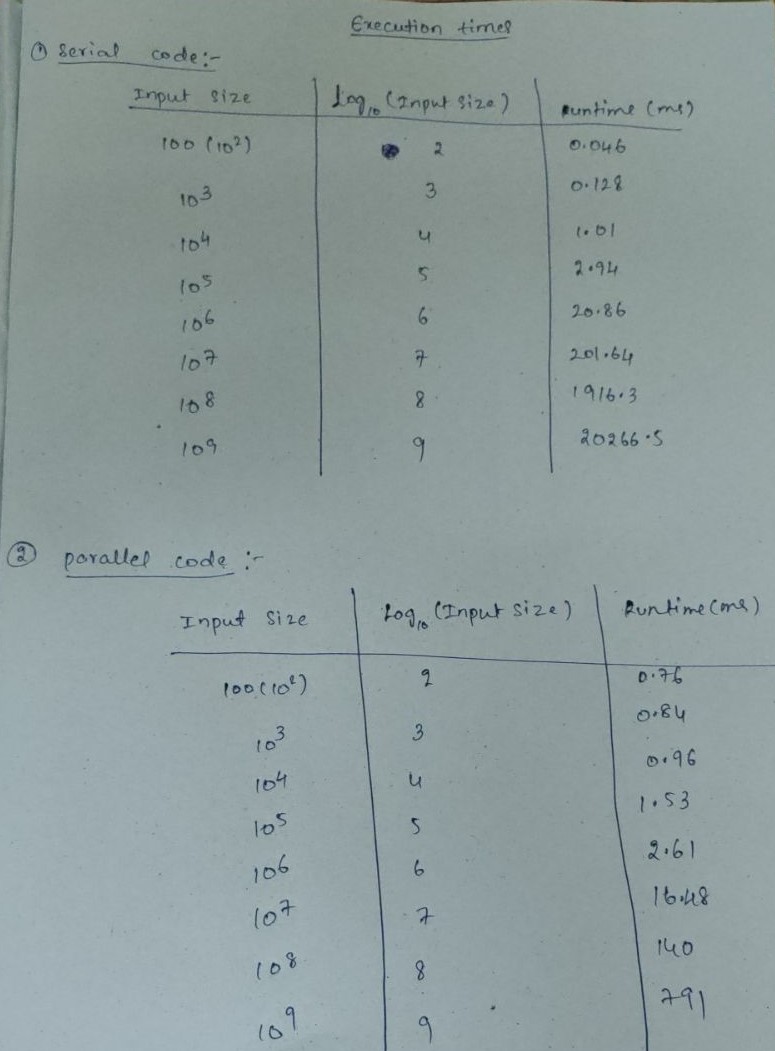 Execution times
① Serial code:-
Input Size Log₁₀ (Input Size) Runtime (ms)
100 (10²) 2 0.046
10³ 3 0.128
10⁴ 4 1.01
10⁵ 5 2.94
10⁶ 6 20.86
10⁷ 7 201.64
10⁸ 8 1916.3
10⁹ 9 20266.5
② parallel code :-
Input Size Log₁₀ (Input Size) Runtime (ms)
100 (10²) 2 0.76
10³ 3 0.84
10⁴ 4 0.96
10⁵ 5 1.53
10⁶ 6 2.61
10⁷ 7 16.48
10⁸ 8 140
10⁹ 9 791